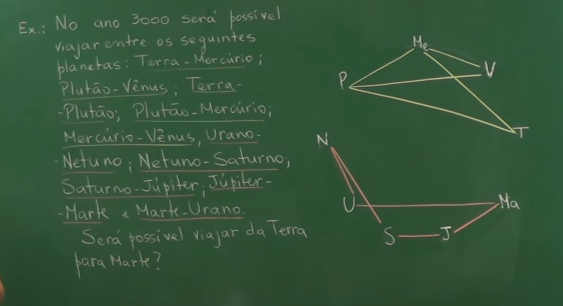 Ex.: No ano 3000 será possível
viajar entre os seguintes
planetas: Terra-Mercúrio;
Plutão-Vênus; Terra-
-Plutão; Plutão-Mercúrio;
Mercúrio-Vênus, Urano-
-Netuno; Netuno-Saturno;
Saturno-Júpiter; Júpiter-
-Marte e Marte-Urano.
Será possível viajar da Terra
para Marte?
Me
V
P
T
N
U
Ma
S
J